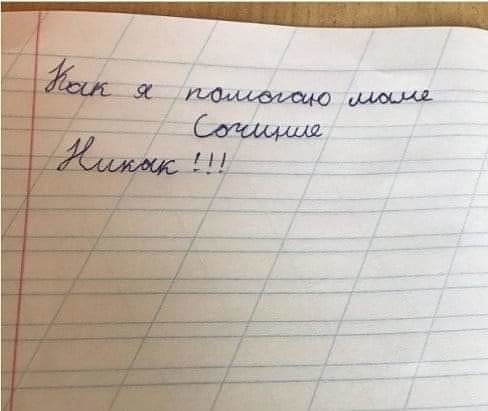 Как я помогаю маме
Сочиние
Никак !!!